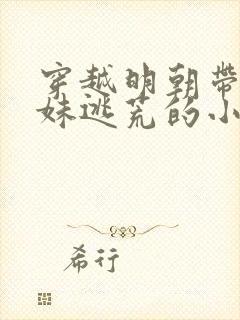 穿越明朝帶
妹逃荒的小
希行